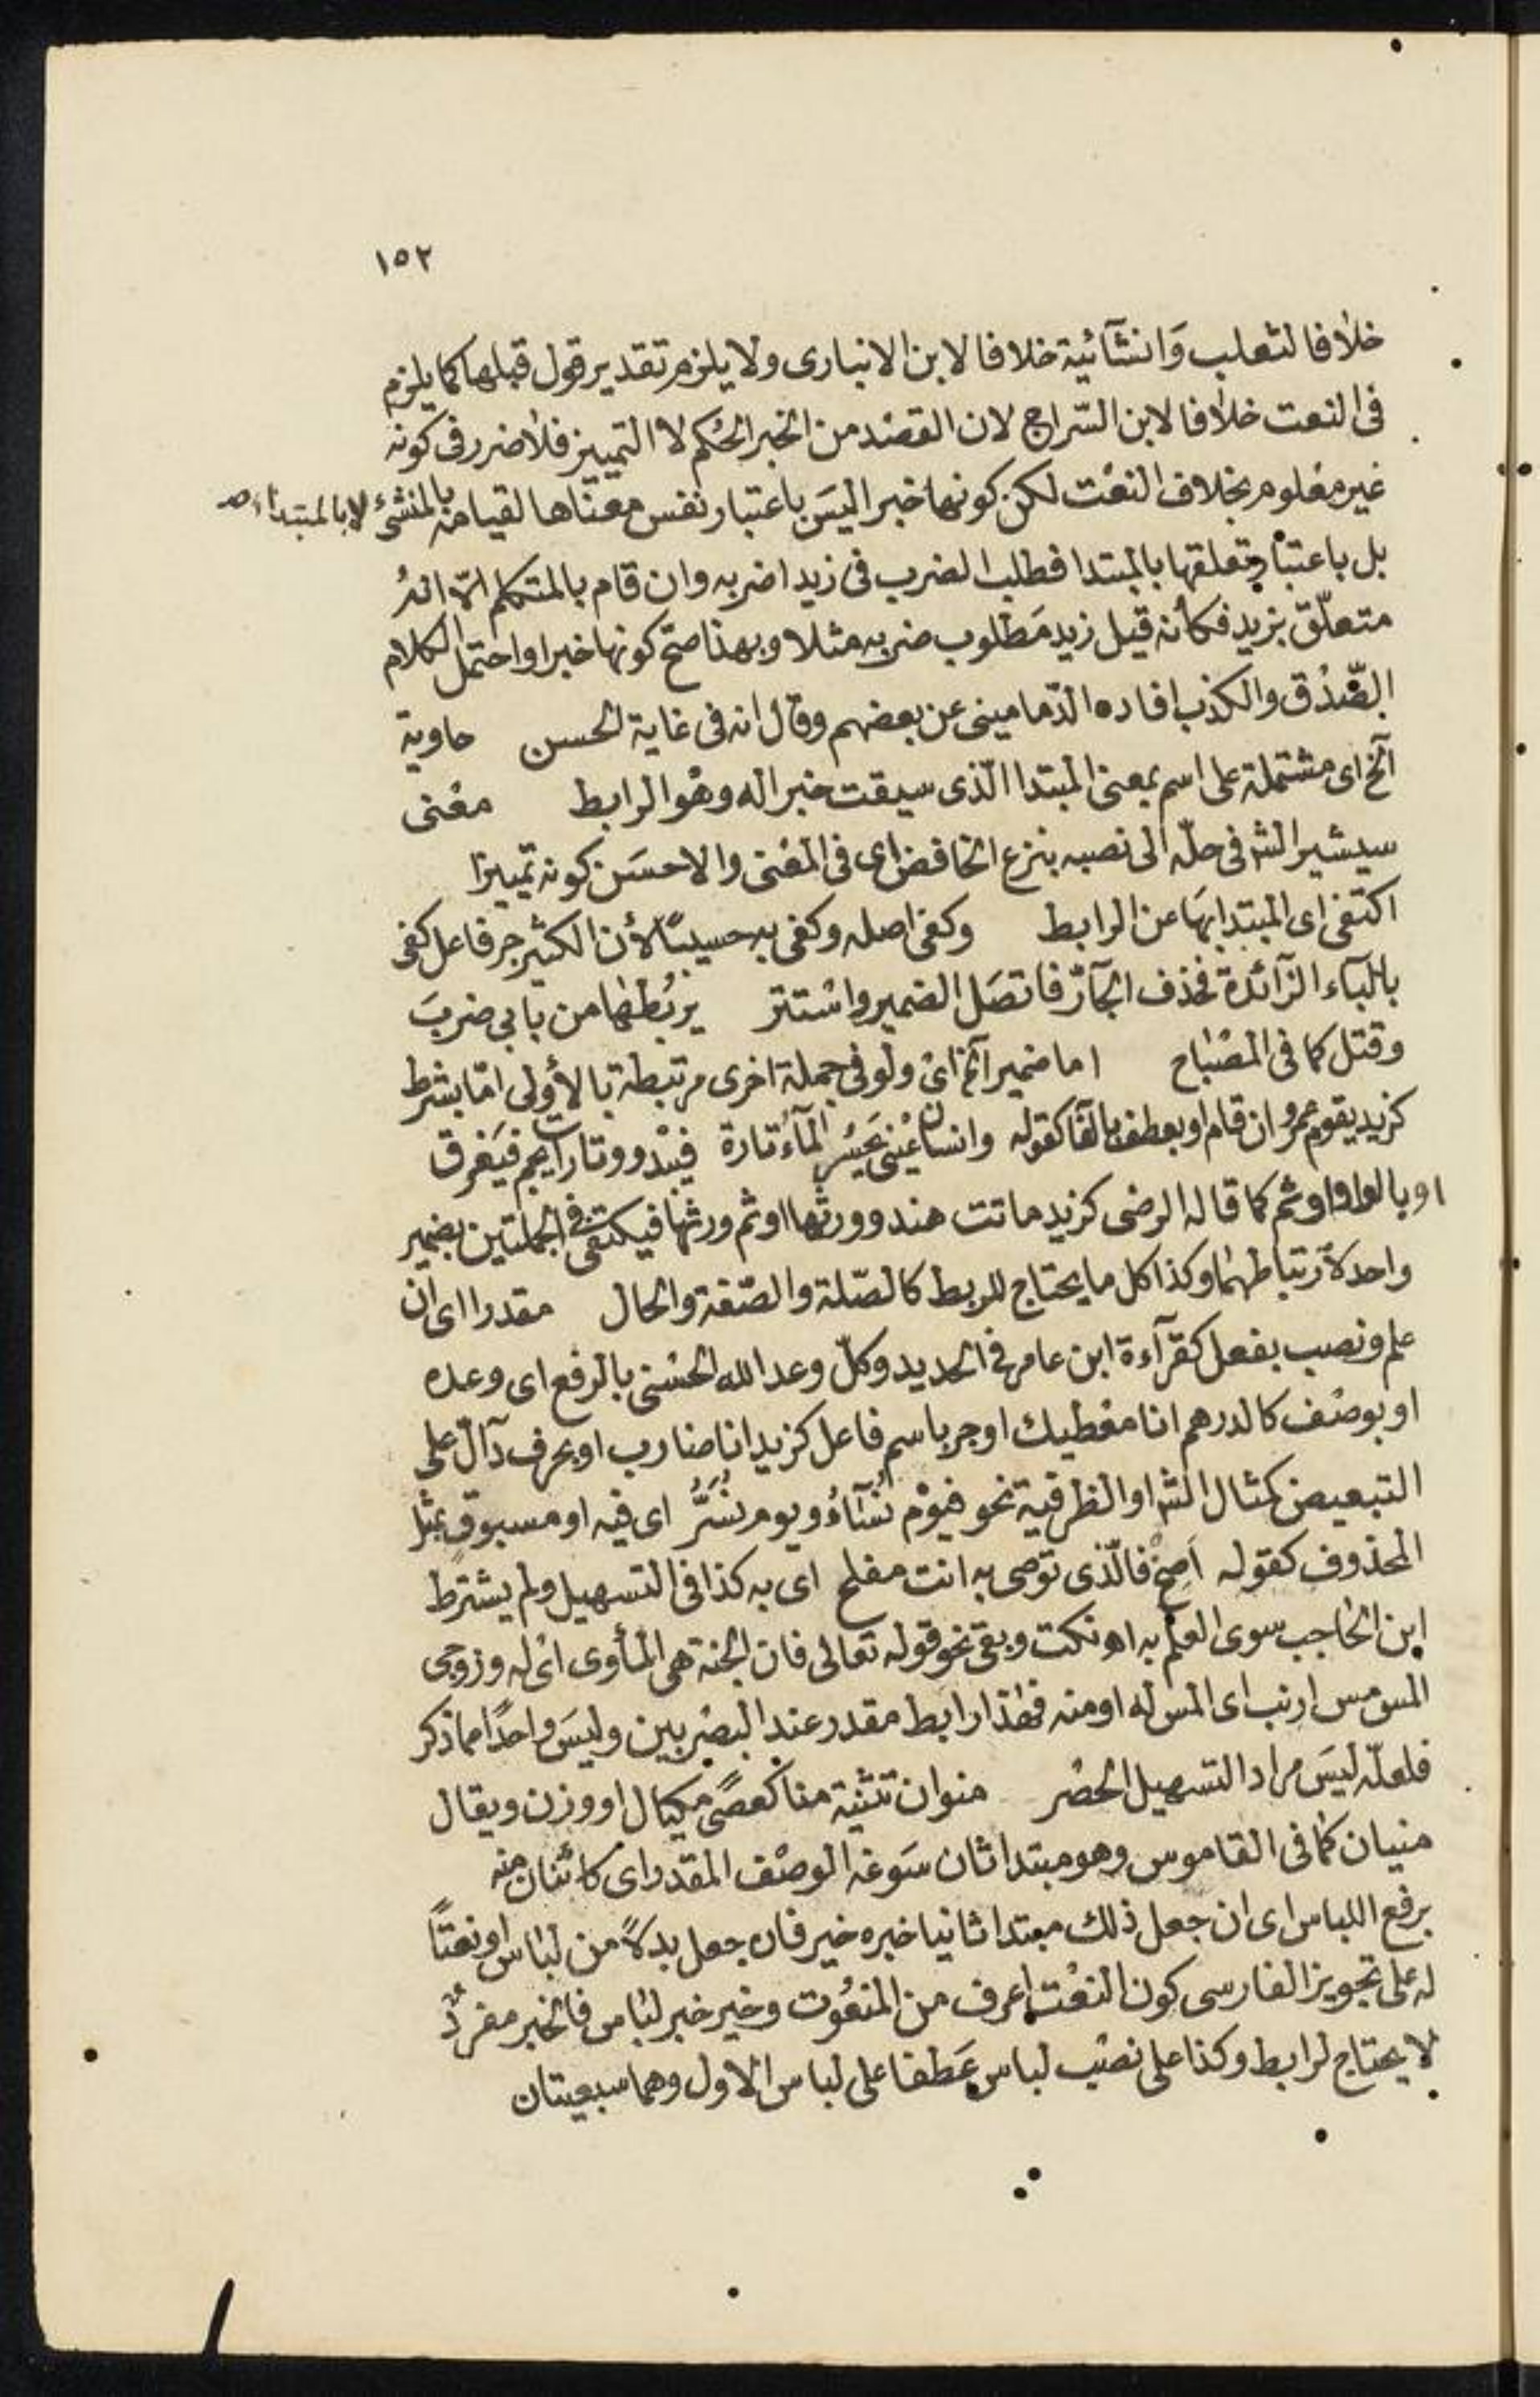 ١٥٢
خلافا لثعلب وَانشآئية خلافا لابن الانبارى ولا يلزم تقدير قول قبلها كما يلزم
فى النعت خلافا لابن السّراج لان القصْد من الخبر الحكم لا التمييز فلا ضرر فى كونه
غير معْلوم بخلاف النعْت لكن كونها خبرا ليسَ باعتبار نفس معناها لقيامه بالمنشئ لا بالمبتداء
بل باعتبار تعلقها بالمبتدا فطلب الضرب فى زيد اضربه وان قام بالمتكلم الّا انهُ
متعلّق بزيد فكأنه قيل زيد مَطلوب ضربه مثلا وبهذا صحّ كونها خبرا واحتمل الكلام
الصّدْق والكذب افاده الدّمامينى عن بعضهم وقال انه فى غاية الحسن حاوية
الخ اى مشتملة على اسم بمعنى المبتدا الّذى سيقت خبرا له وهْو الرابط معْنى
سيشير الش فى حلّه الى نصبه بنزع الخافض اى فى المعْنى والاحسَن كونه تمييزا
اكتفى اى المبتدا بهَا عن الرابط وكفى اصله وكفى به حسيبًا لأن الكثير جر فاعل كفى
بالبآء الزّآئدة فحذف الجآرّ فاتصَل الضمير واسْتتر يربُطهَا من بابى ضربَ
وقتل كما فى المصْباح اما ضمير آلخ اىْ ولو فى جملة اخرى مرتبطة بالأولى امّا بشرط
كزيد يقوم عمرو ان قام او بعطف بالفا كقوله وانسان عيْنى يَحسُر المآءُ تارة فيبْدو وتارات يجم فيَغرق
او بالواو او ثم كما قاله الرضى كزيد ماتت هند وورثها او ثم ورثها فيكتفى فى الجملتين بضمير
واحد لارتباطهمَا وكذا كل ما يحتاج للربط كالصّلة والصّفة والحال مقدرا اى ان
علم ونصب بفعل كقرآءة ابن عامر فى الحديد وكلّ وعد الله الحسْنى بالرفع اى وعده
او بوصْف كالدرهم انا معْطيك او جر باسم فاعل كزيد انا ضارب او بحرف دآلّ على
التبعيض كمثال الش او الظرفية نحو فيوْم نُسَآءُ ويوم نُسَرُّ اى فيه او مسبوق بمثل
المحذوف كقوله اَصِخْ فالّذى توصى به انت مفلح اى به كذا فى التسهيل ولم يشترط
ابن الحاجب سوى العلم به اه نكت وبقى نحو قوله تعالى فان الجنة هى المأوى اىْ له وزوجى
المس مس ارنب اى المس له او منه فهذا رابط مقدر عند البصْريين وليسَ واحدًا مما ذكر
فلعلّه ليسَ مراد التسهيل الحصْر منوان تثنية منا كعصًى مكيال او وزن ويقال
منيان كما فى القاموس وهو مبتدا ثان سَوغه الوصْف المقدر اى كائنان منه
برفع اللباس اى ان جعل ذلك مبتدا ثانيا خبره خير فان جعل بدلًا من لباس او نعتًا
له على تجويز الفارسى كون النعْت اعرف من المنعُوت وخير خبر لباس فالخبر مفردٌ
لا يحتاج لرابط وكذا على نصْب لباس عَطفا على لباس الاول وهما سبعيتان